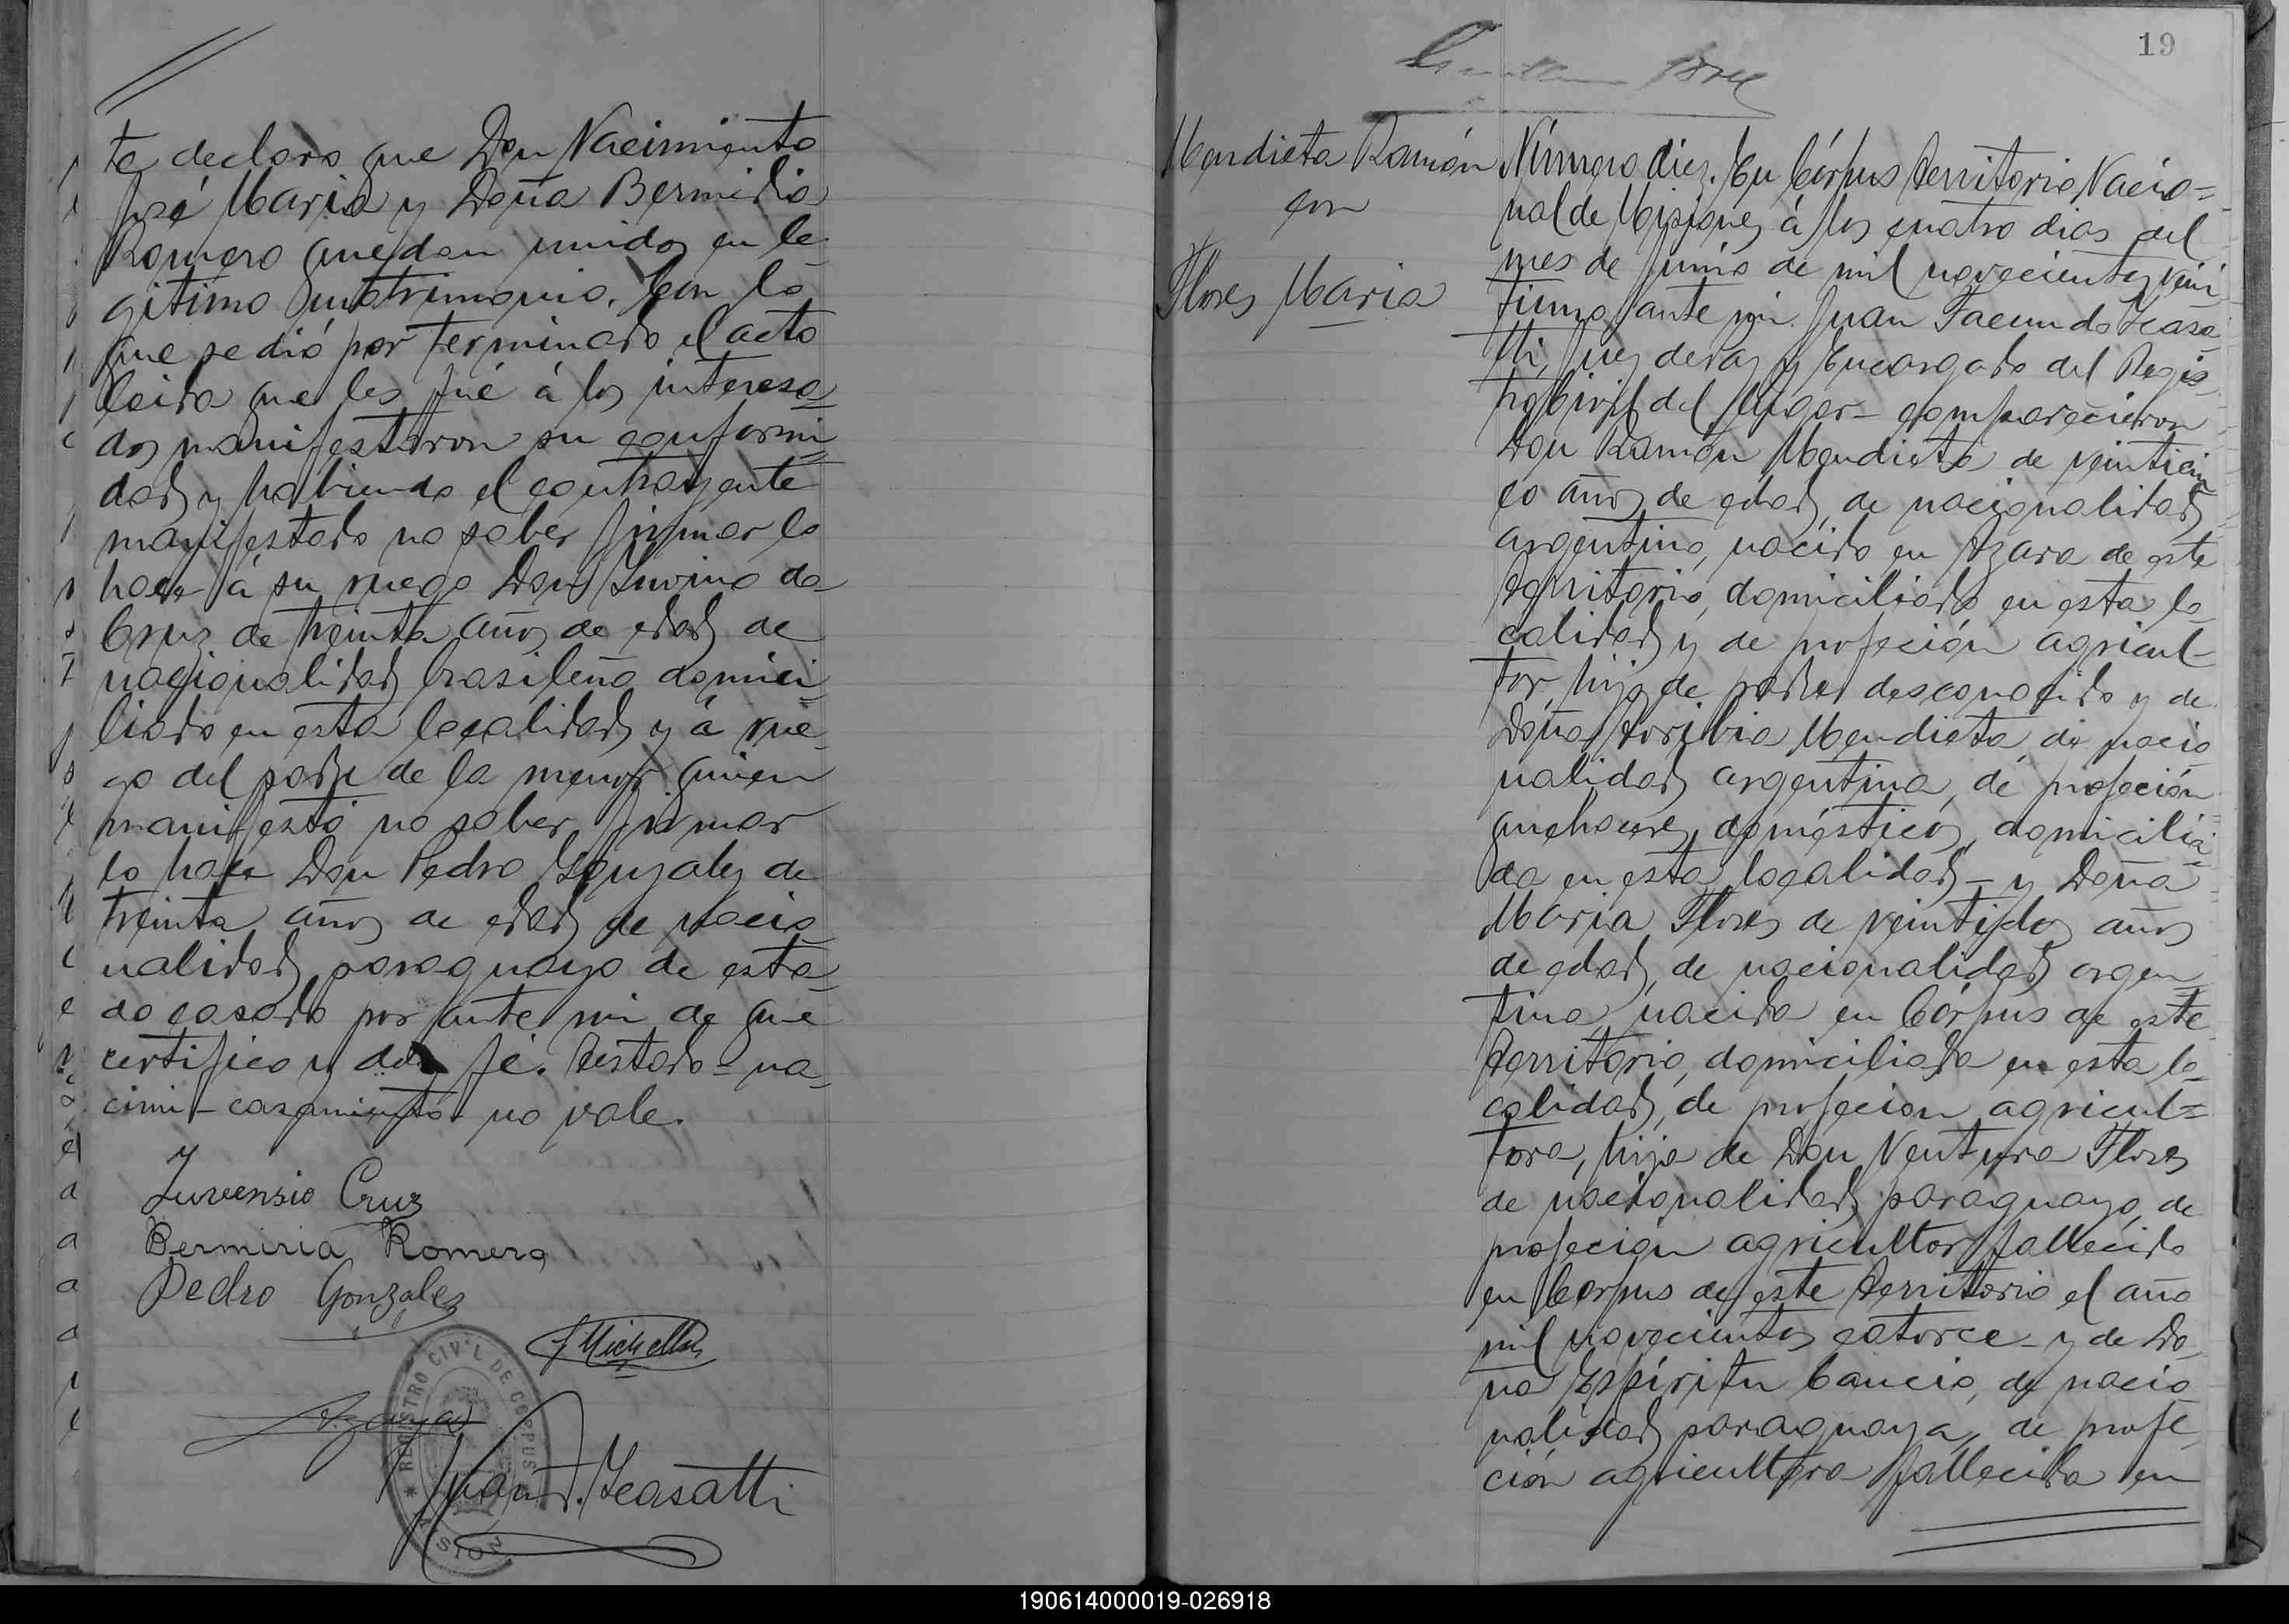 te declaro que Don Nacimiento
José Maria y Doña Bermidia
Romero quedan unidos en le-
gitimo matrimonio. Con lo
que se dió por terminado el acto
leida que les fué á los interesa=
dos manifestaron su conformi=
dad y habiendo el contrayente
manifestado no saber firmar lo
hace á su ruego Don Juvino da
Cruz de treinta años de edad de
nacionalidad brasileña domici-
liado en esta localidad y á rue-
go del padre de la menor quien
manifestó no saber firmar
lo hace Don Pedro Gonzalez de
treinta años de edad de nacio
nalidad paraguaya de esta-
do casado por ante mi de que
certifico y doy fé. Testado - na-
cimi - casamiento - no vale.
Juvensio Cruz
Bermiria Romero
Pedro Gonzalez
REGISTRO CIVIL DE CORPUS
Juan F. Scasatti
19
Mendieta Ramón
con
Flores Maria
Número diez. En Córpus Territorio Nacio=
nal de Misiones á los cuatro dias del
mes de Junio de mil novecientos vein
tiuno, ante mi Juan Facundo Scasa
tti, Juez de Paz y Encargado del Regis
tro Civil del lugar - comparecieron
Don Ramón Mendieta de veinticin
co años de edad, de nacionalidad
argentino, nacido en Azara de este
Territorio, domiciliado en esta lo
calidad y de profeción agricul-
tor, hijo de padre desconocido y de
Doña Toribia Mendieta de nacio
nalidad argentina, de profeción
quehaceres domésticos, domicilia-
da en esta localidad - y Doña
Maria Flores de veintidos años
de edad, de nacionalidad argen
tina nacida en Córpus de este
Territorio, domiciliada en esta lo-
calidad, de profecion agricul=
tora, hija de Don Ventura Flores
de nacionalidad paraguayo, de
profecion agricultor fallecido
en Corpus de este Territorio el año
mil novecientos catorce - y de Do
ña Espíritu Cancio, de nacio
nalidad paraguaya, de profe
ción agricultora fallecida en
190614000019-026918